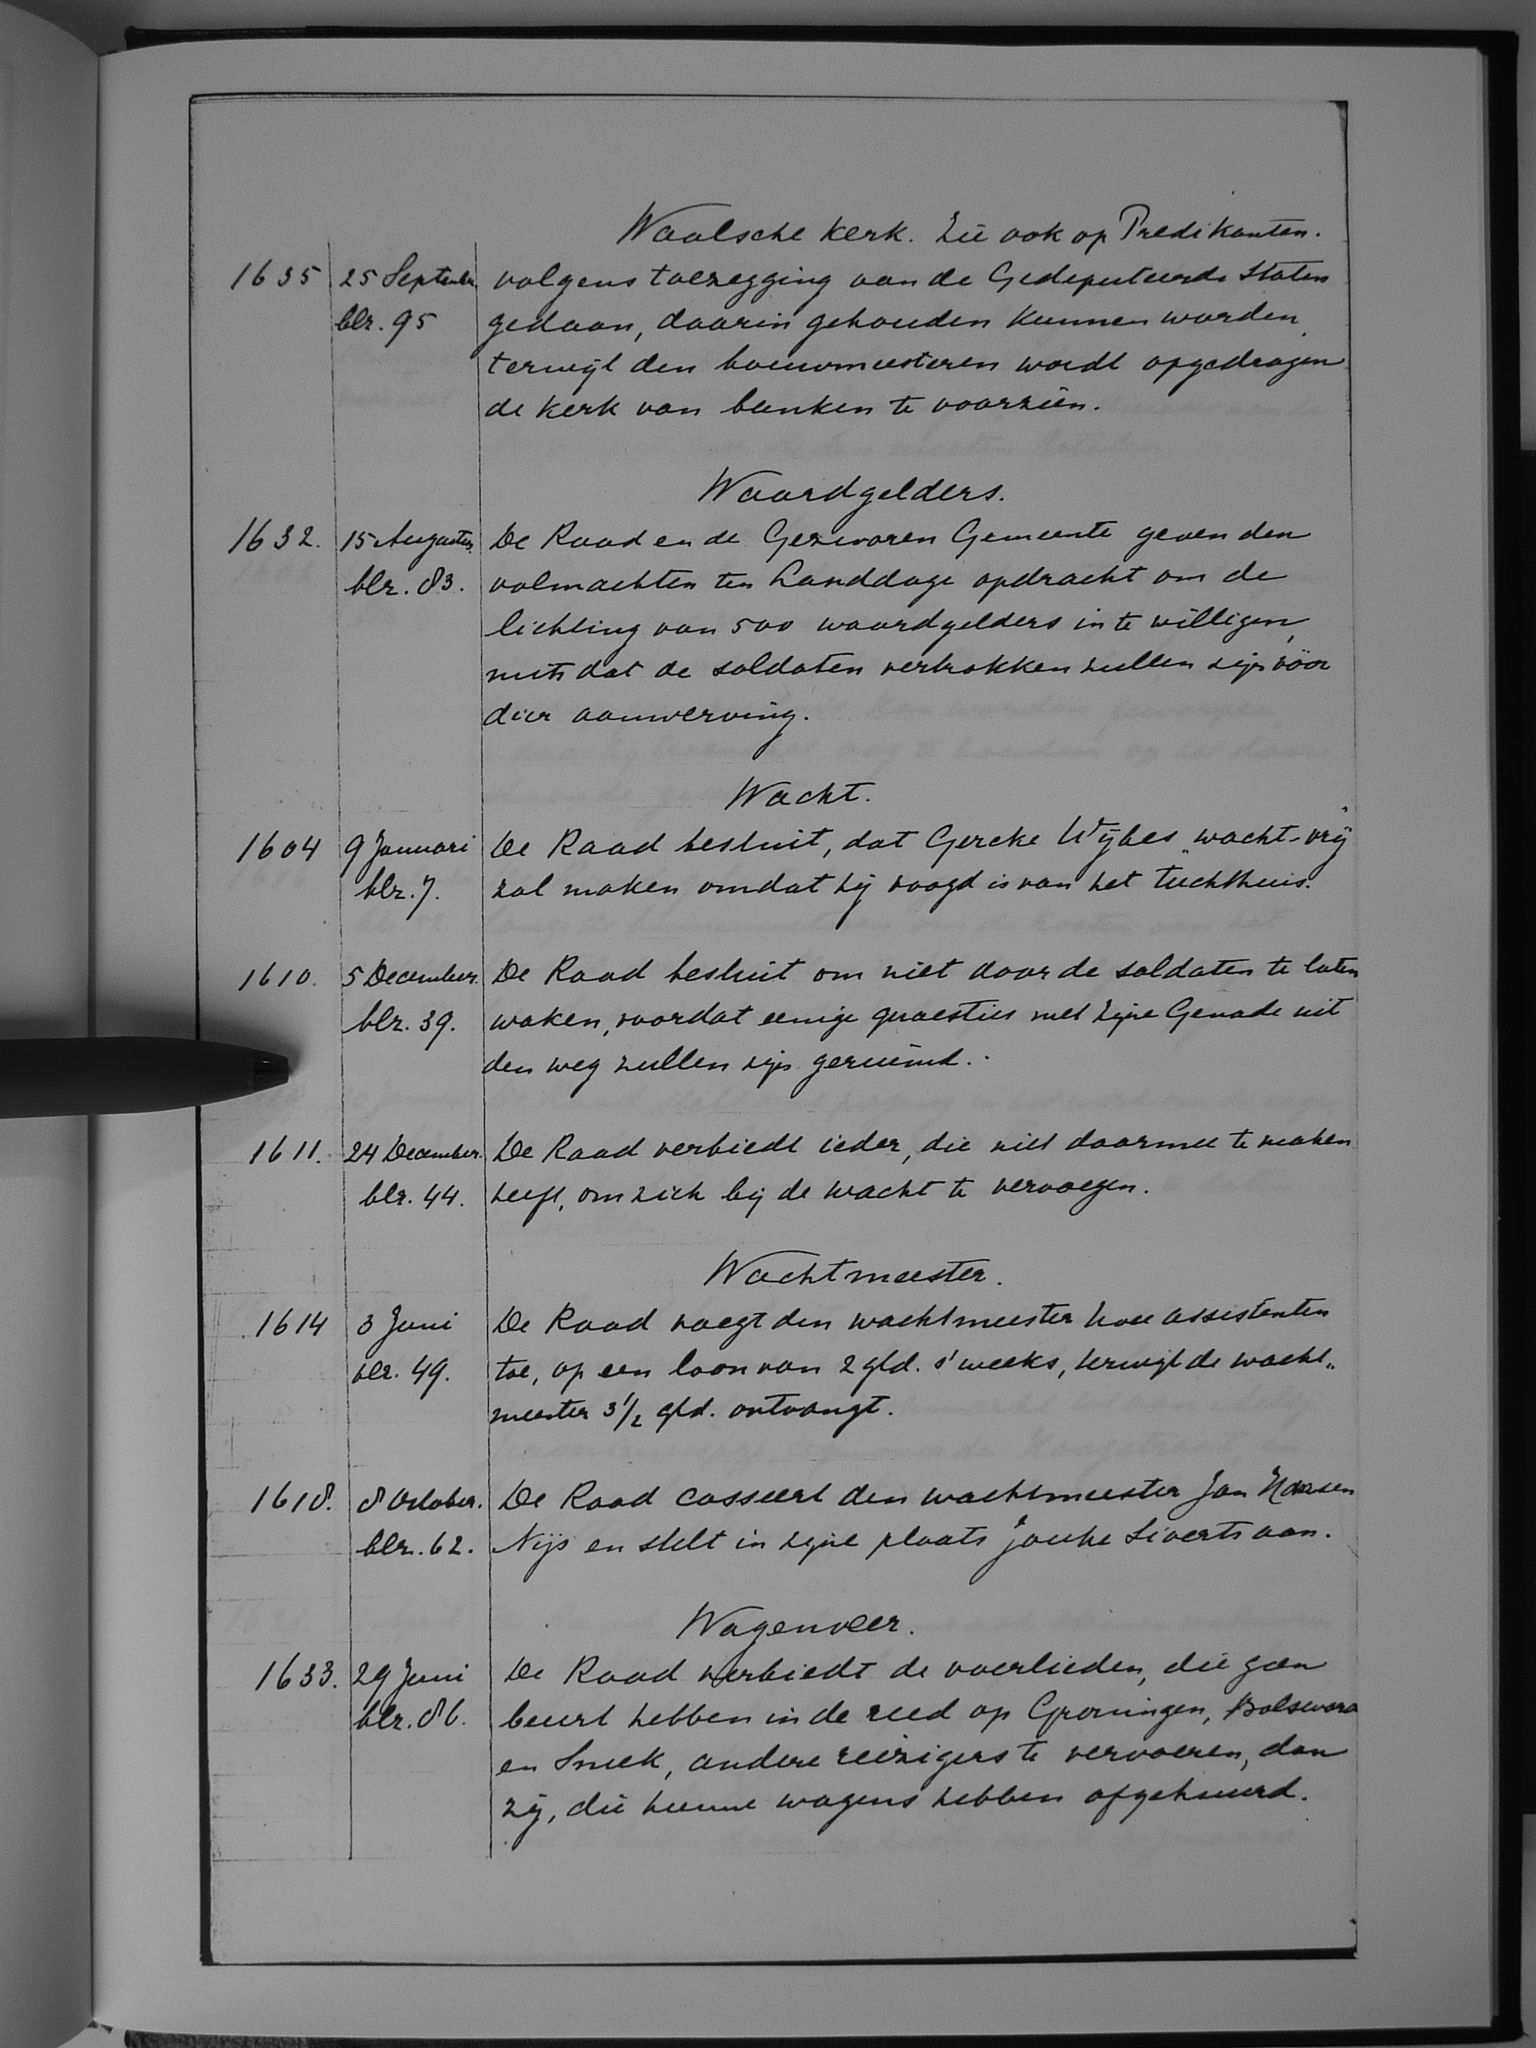 Waalsche kerk. Zie ook op Predikanten.
1635 25 Septembr. volgens toezegging van de Gedeputeerde Staten
blz. 95 gedaan, daarin gehouden kunnen worden,
terwijl den bouwmeesteren wordt opgedragen
de kerk van banken te voorzien.
Waardgelders.
1632. 15 Augustus. De Raad en de Gezworen Gemeente geven den
blz. 83. volmachten ten Landdage opdracht om de
lichting van 500 waardgelders in te willigen,
mits dat de soldaten vertrokken zullen zijn vóór
dier aanwerving.
Wacht.
1604 9 Januari De Raad besluit, dat Gercke Wijbes „wacht-vrij"
blz. 7. zal maken omdat hij voogd is van het tuchthuis.
1610. 5 December. De Raad besluit om niet door de soldaten te laten
blz. 39. waken, voordat eenige quaesties met Zijne Genade uit
den weg zullen zijn geruimd.
1611. 24 December. De Raad verbiedt ieder, die niet daarmee te maken
blz. 44. heeft, om zich bij de wacht te vervoegen.
Wachtmeester.
1614 3 Juni De Raad voegt den wachtmeester twee assistenten
blz. 49. toe, op een loon van 2 gld. s' weeks, terwijl de wacht„
meester 3 1/2 gld. ontvangt.
1618. 8 October. De Raad casseert den wachtmeester Jan
blz. 62. Nijs en stelt in zijne plaats Jouke Sioerts aan.
Wagenveer.
1633. 29 Juni De Raad verbiedt de voerlieden, die geen
blz. 86. beurt hebben in de reed op Groningen, Bolsward
en Sneek, andere reizigers te vervoeren, dan
zij, die hunne wagens hebben afgehuurd.